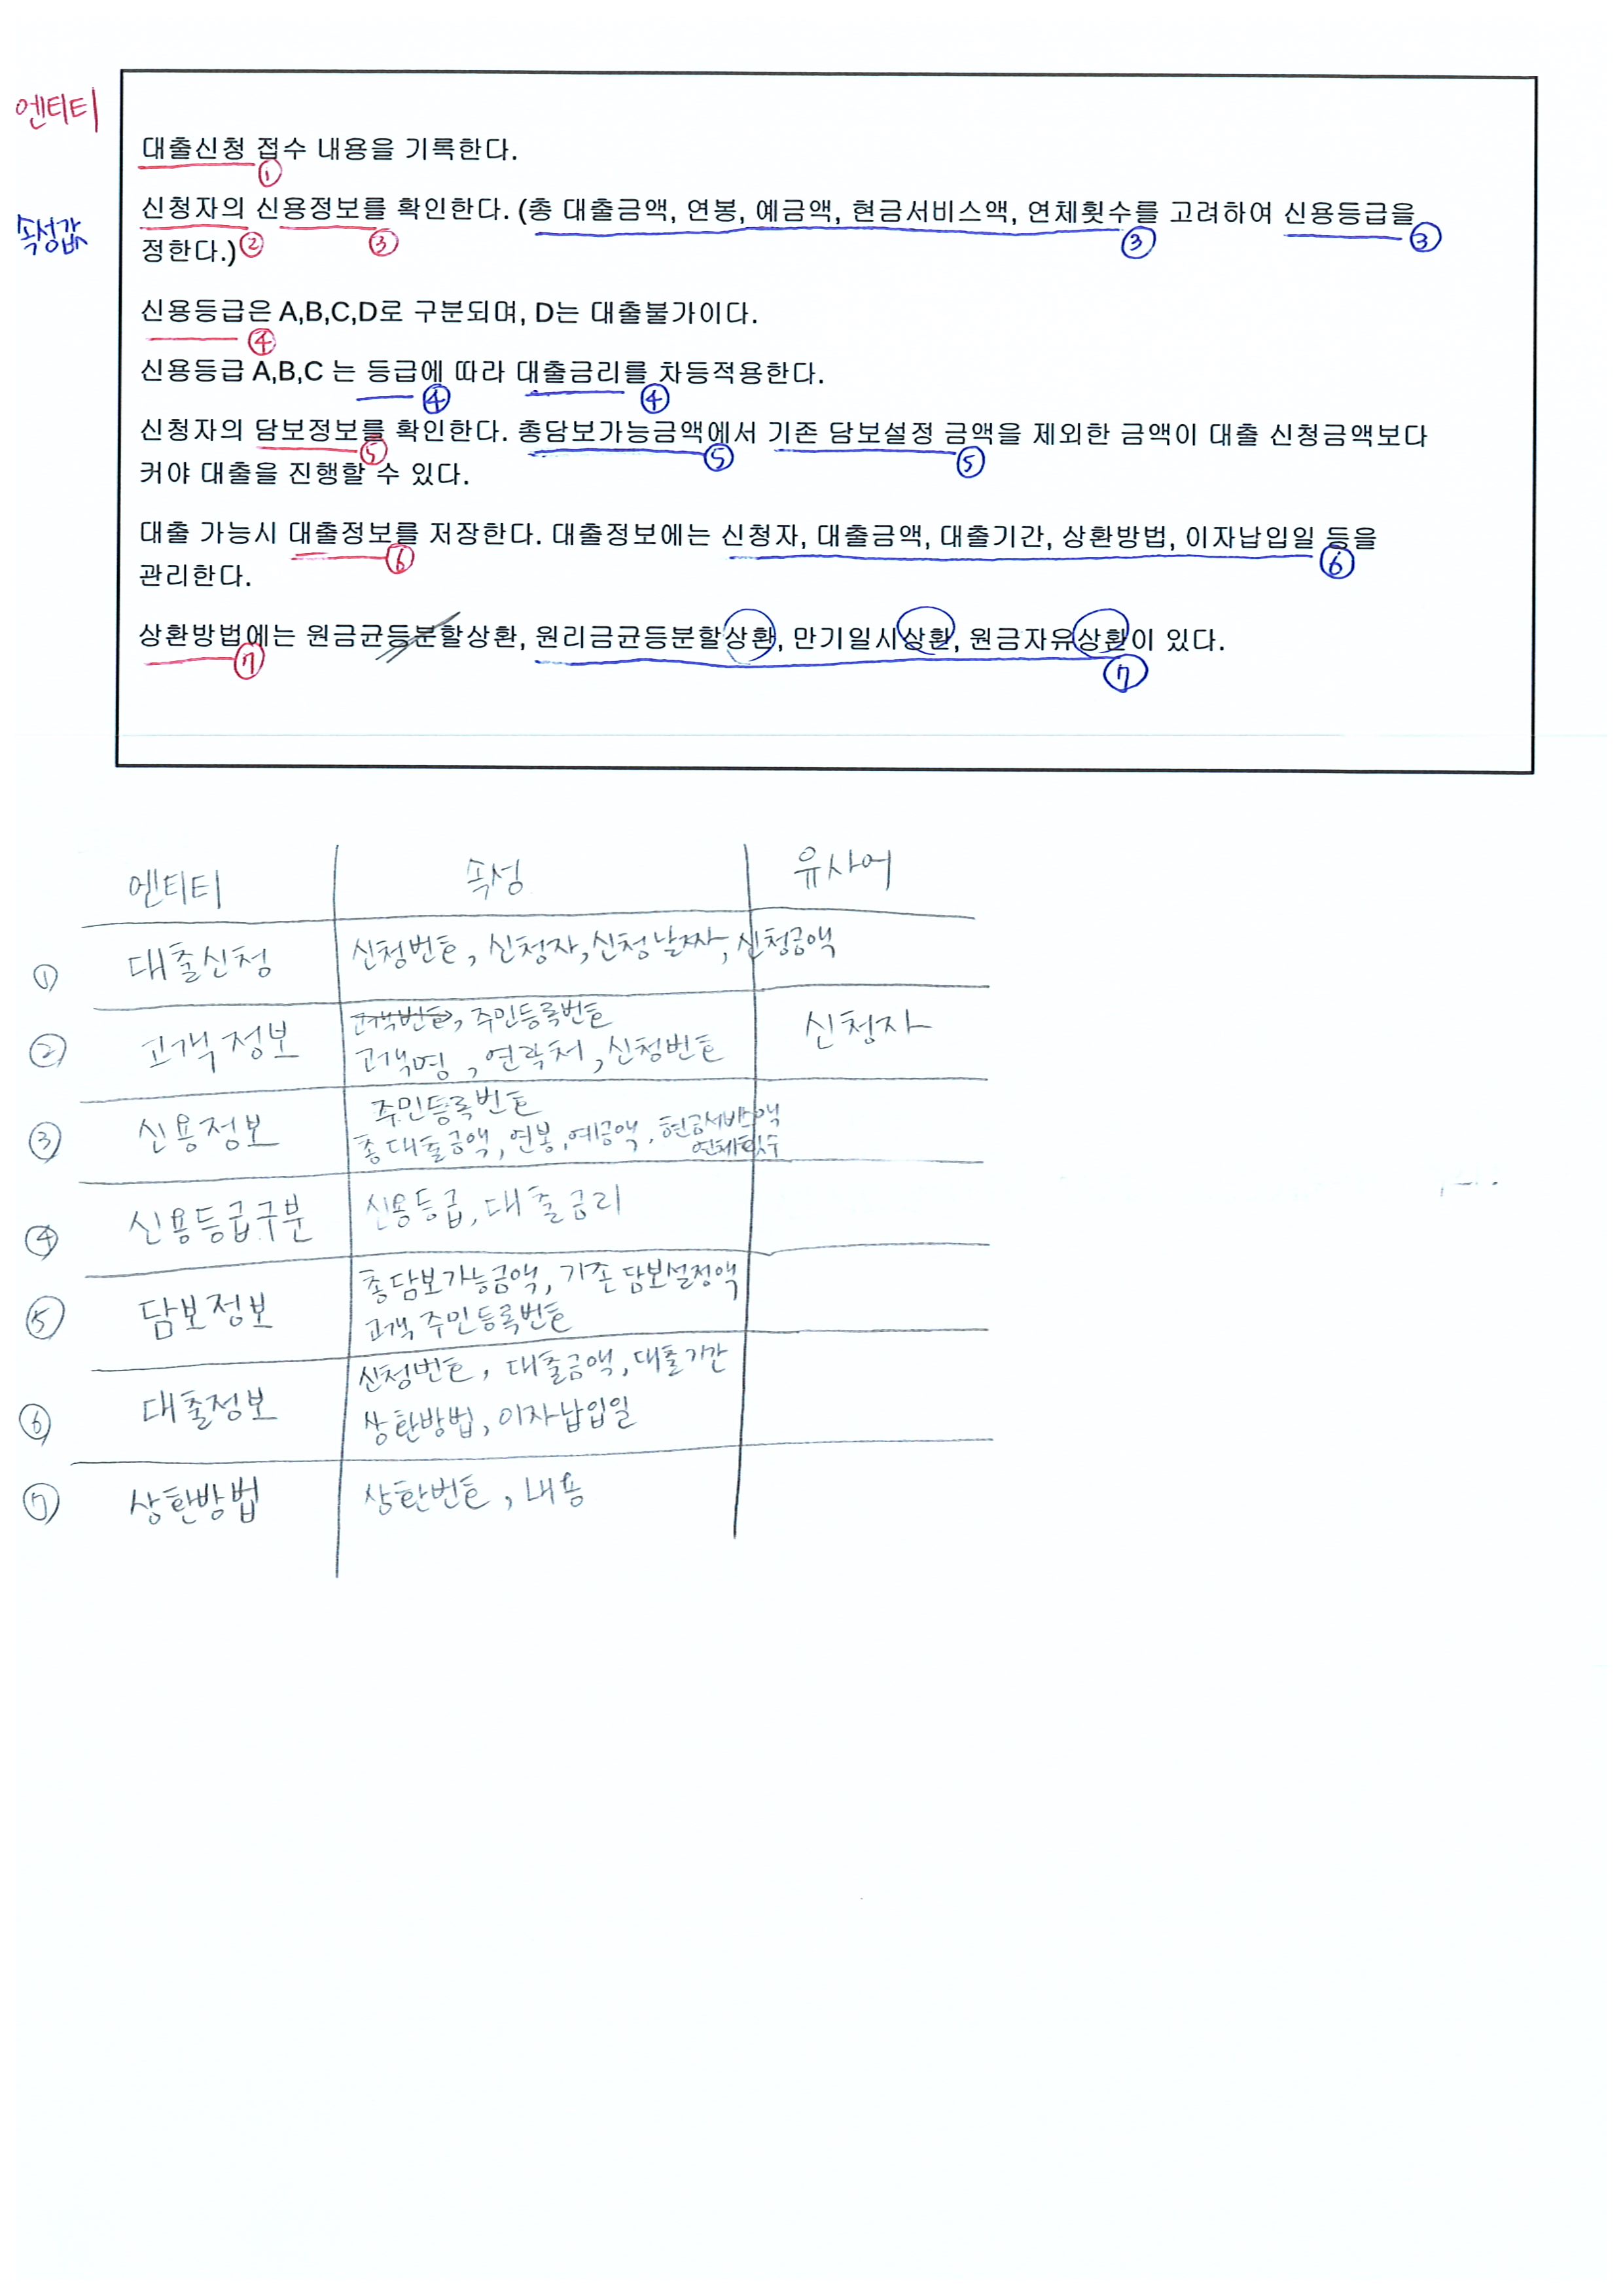 엔티티
속성값
대출신청 접수 내용을 기록한다.
①
신청자의 신용정보를 확인한다. (총 대출금액, 연봉, 예금액, 현금서비스액, 연체횟수를 고려하여 신용등급을
② ③ ③ ③
정한다.)
신용등급은 A,B,C,D로 구분되며, D는 대출불가이다.
④
신용등급 A,B,C 는 등급에 따라 대출금리를 차등적용한다.
④ ④
신청자의 담보정보를 확인한다. 총담보가능금액에서 기존 담보설정 금액을 제외한 금액이 대출 신청금액보다
⑤ ⑤ ⑤
커야 대출을 진행할 수 있다.
대출 가능시 대출정보를 저장한다. 대출정보에는 신청자, 대출금액, 대출기간, 상환방법, 이자납입일 등을
⑥ ⑥
관리한다.
상환방법에는 원금균등분할상환, 원리금균등분할상환, 만기일시상환, 원금자유상환이 있다.
⑦ ⑦
엔티티 속성 유사어
① 대출신청 신청번호, 신청자, 신청날짜, 신청금액
② 고객정보 고객번호, 주민등록번호
고객명, 연락처, 신청번호 신청자
③ 신용정보 주민등록번호
총대출금액, 연봉, 예금액, 현금서비스액
연체횟수
④ 신용등급구분 신용등급, 대출금리
⑤ 담보정보 총담보가능금액, 기존담보설정액
고객 주민등록번호
⑥ 대출정보 신청번호, 대출금액, 대출기간
상환방법, 이자납입일
⑦ 상환방법 상환번호, 내용